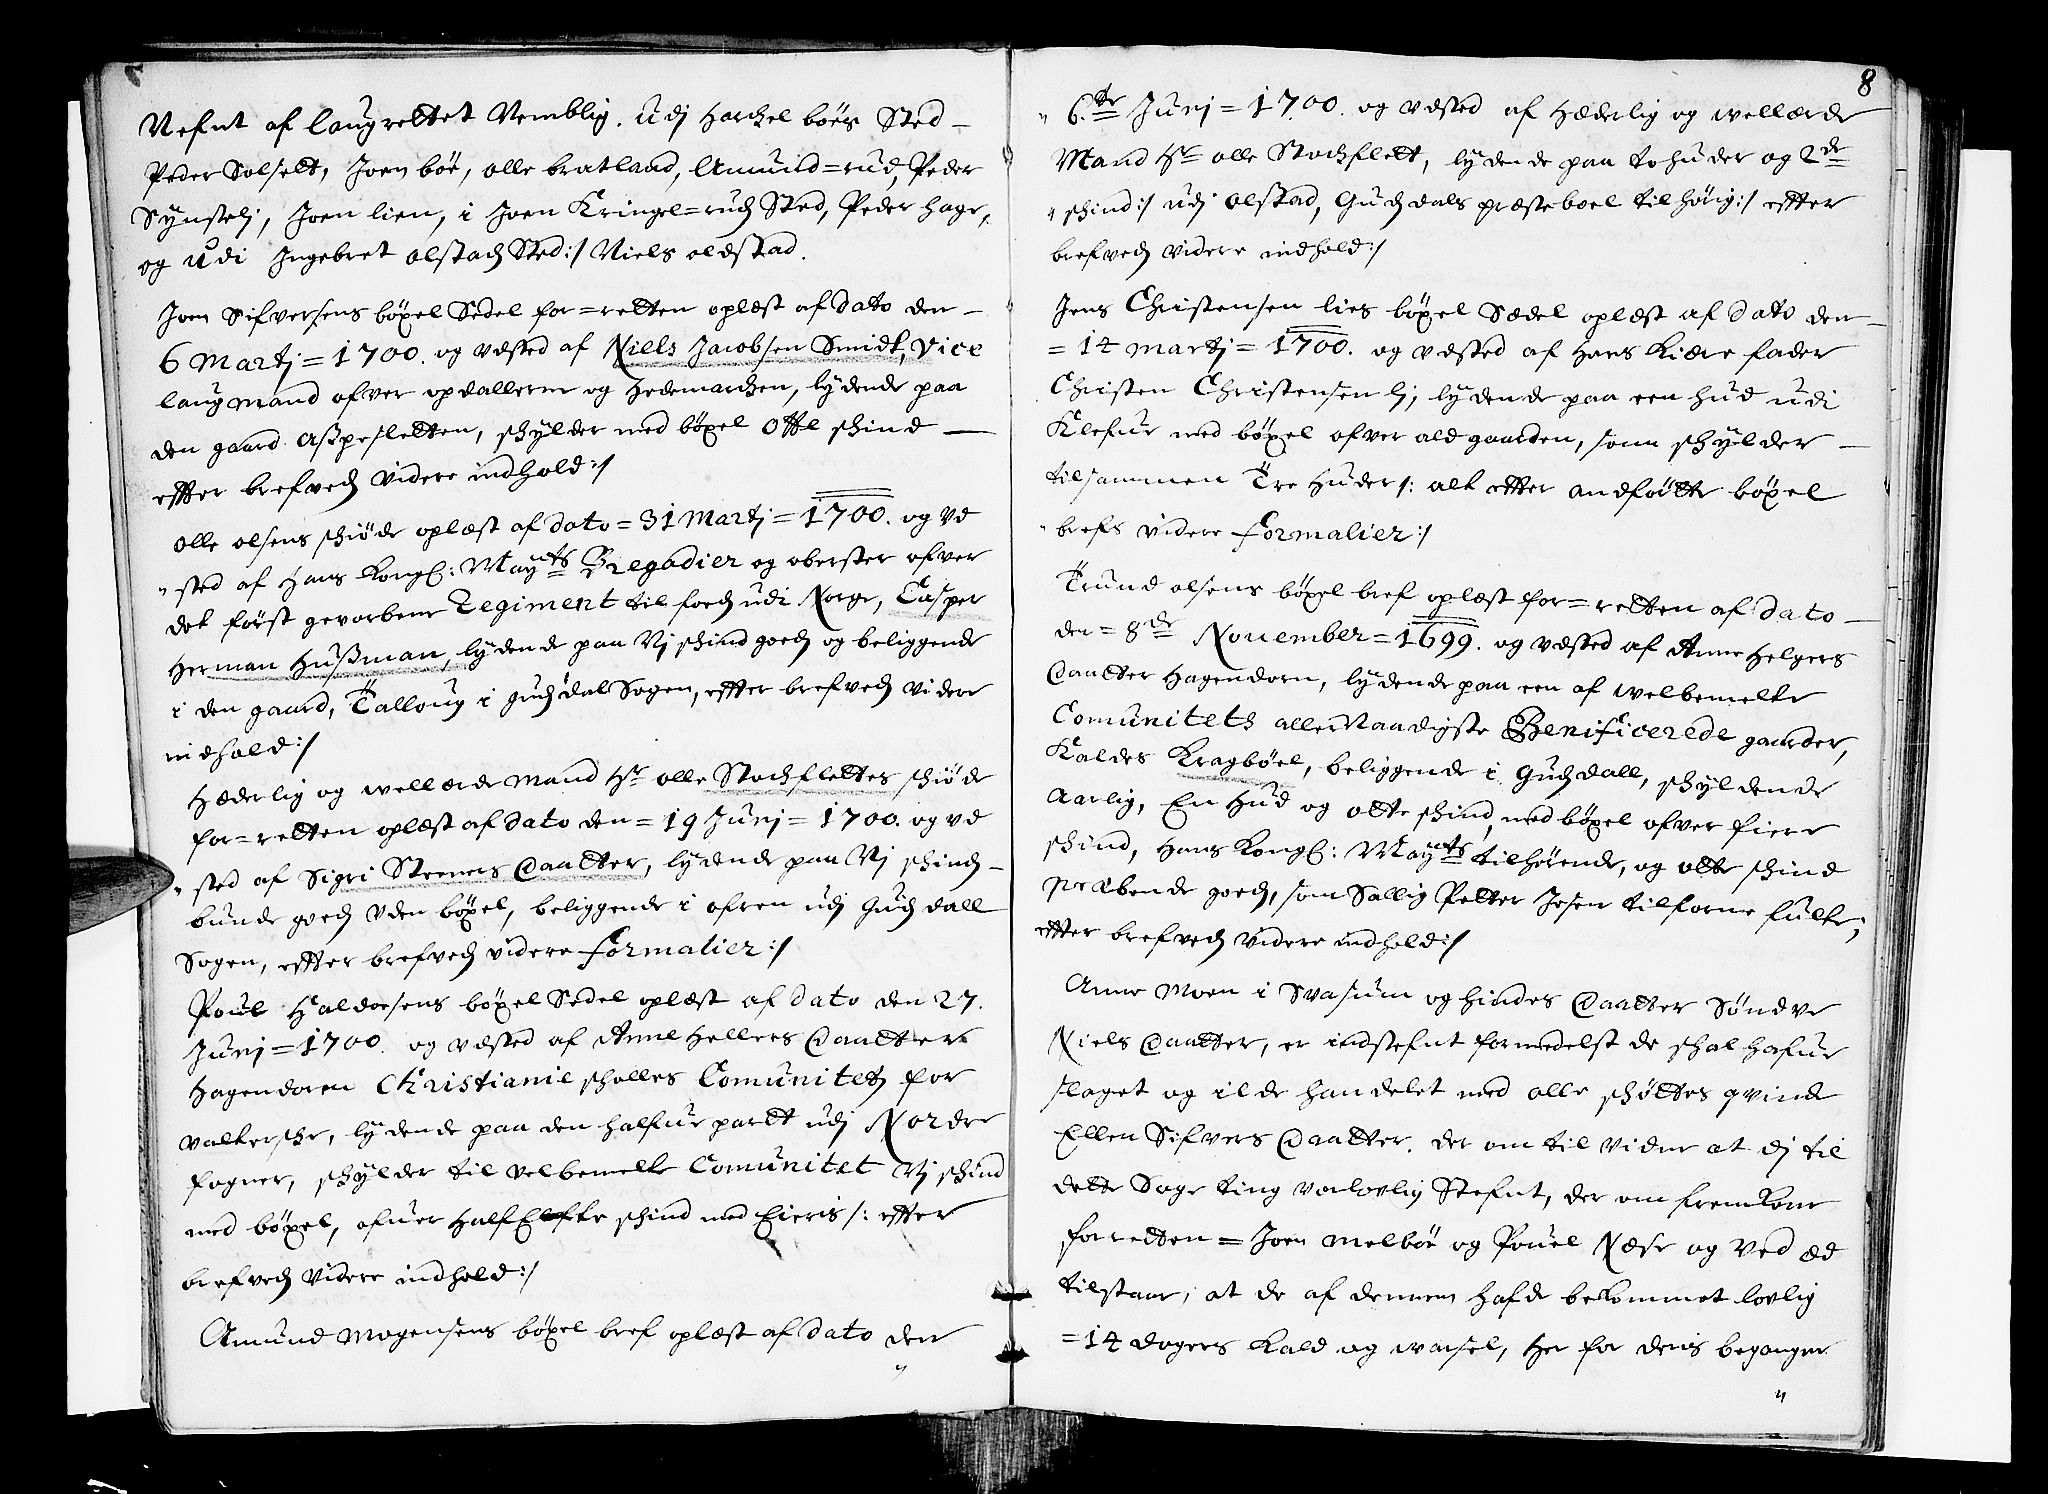 Nefnt af laugrettet Nemblig. udj Harchel böes Sted_
Peder Solfelt, Joen böe, olle bratland, Amund=rud, Peder
Synstelj, Joen lien, i Joen Kringel=ruds Sted, Peder hage,
og udi Ingebret olstads Sted:/ Niels oldstad.
Joen Sifversens böxel Sedel for=retten oplæst af dato den_
6 Martj=1700. og vdsted af Niels Jacobsen Smidt, Vice
laugmand ofver opdallerne og Hedemarchen, lydende paa
den gaard Aßpesletten, schylder med böxel Otte schind_
effter brefveds videre indhold:/
olle olsens schiöde oplæst af dato=31 Martj=1700. og vd
"sted af Hans Kongl: Mayts Bregadier og oberster ofver
det först gevorbene Regiment til foeds udi Norge, Casper
Herman Hußman, lydende paa Vj schind goeds og beliggende
i den gaard, Talloug i Guds dal Sogen, effter brefveds videre
indhold:/
Hæderlig og wellærde Mand Hr olle Stochflettes schiöde
for=retten oplæst af dato den=19 Junj=1700. og vd
"sted af Sigri Steeners Daatter, lydende paa Vj schinds_
bunde goeds Uden böxel, beliggende i ofren udj Guds dall
Sogen, effter brefveds videre formalier:/
Poul Haldorsens böxel Sedel oplæst af dato den 27.
Junj=1700. og vdsted af Anne Hellers Daatter
Hagendoren Christianie scholles Comunitets for
valtersche, lydende paa den halfue partt udj Nordre
fogner, schylder til velbemelte Comunitet Vj schind
med böxel, ofuer Half Elfte schind med Eieris /: effter
brefveds videre indhold:/
Amund Mogensens böxel bref oplæst af dato den
"
8
"6.te Junj=1700. og vdsted af Hæderlig og wellærde
Mand Hr olle Stochflett, lydende paa to huder og 2de
"schind:/ udj olstad, Guds dals præsteboel tilhörig:/ effter
brefveds videre indhold:/
Jens Christensen lies böxel Sædel oplæst af dato den_
=14 martj=1700. og vdsted af Hans Kiære fader
Christen Christensen lj, lydende paa een hud udi
Klefue med böxel ofver ald gaarden, som schylder_
tilsammen Tre Huder /: alt effter andförte böxel
"brefs videre formalier:/
Trund olsens böxel bref oplæst for=retten af dato_
den=8de November=1699. og vdsted af Anne Helgers
Daatter Hagendorn, lydende paa een af welbemelte
Comunitets allernaadigste Benificerede gaarder,
Kaldes Kragböel, beliggende i Guds dall, schyldende
Aarlig, En Hud og otte schind, med böxel ofver fiere
schind, Hans Kongl: Mayts tilhörende, og otte schind
præbende goeds, som Sallig Petter Jesen tilforne fulte,
effter brefveds videre indhold:/
Anne Moen i Svasum og hindes Daatter Söndve
Niels Daatter, er indstefnt formedelst de schal hafue
slaget og ilde handelet med olle schöttes qvinde
Ellen Sifvers Daatter. der om til vidne at dj til
dette Sage ting var lovlig Stefnt, der om fremkom
for retten=Joen melböe og Pouel Næse og ved æd
tilstaar, at de af dennem hafde bekommet lovlig
=14 dogers Kald og warsel, Her for denis begangne
"